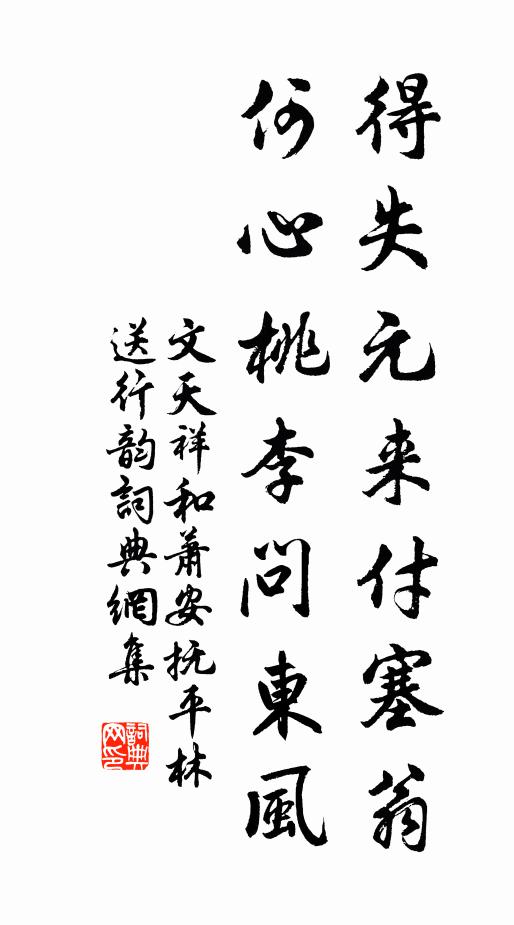 得失元来付塞翁
何心桃李問東風
文天祥和蕭安抚平林
送行韵詞典網集
詞典
网印